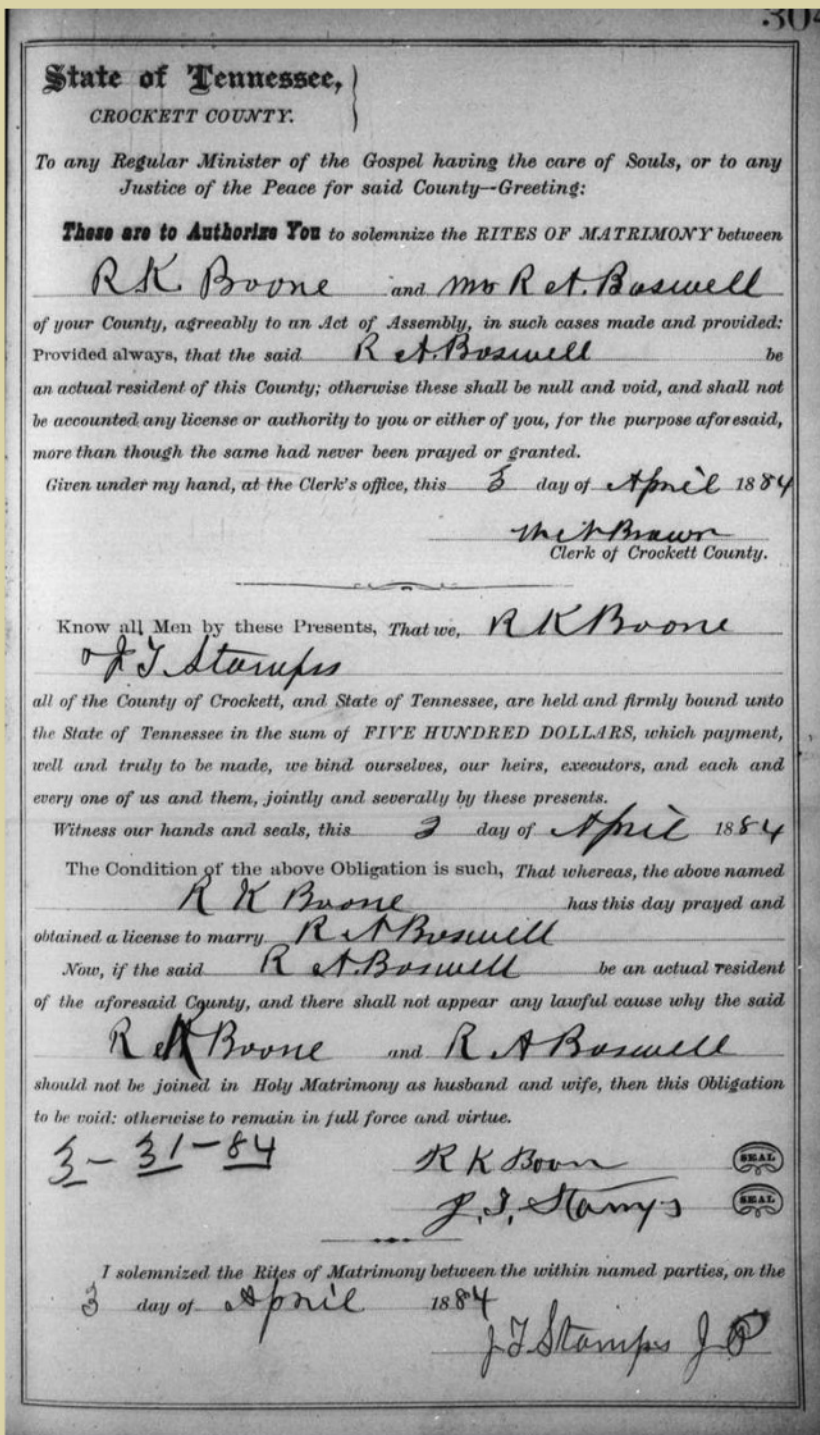 304
State of Tennessee,
CROCKETT COUNTY.
To any Regular Minister of the Gospel having the care of Souls, or to any
Justice of the Peace for said County--Greeting:
These are to Authorize You to solemnize the RITES OF MATRIMONY between
R K. Boone and Mrs R A. Boswell
of your County, agreeably to an Act of Assembly, in such cases made and provided:
Provided always, that the said R A. Boswell be
an actual resident of this County; otherwise these shall be null and void, and shall not
be accounted any license or authority to you or either of you, for the purpose aforesaid,
more than though the same had never been prayed or granted.
Given under my hand, at the Clerk's office, this 3 day of April 1884
Brown
Clerk of Crockett County.
Know all Men by these Presents, That we, R K Boone
J T Stamps
all of the County of Crockett, and State of Tennessee, are held and firmly bound unto
the State of Tennessee in the sum of FIVE HUNDRED DOLLARS, which payment,
well and truly to be made, we bind ourselves, our heirs, executors, and each and
every one of us and them, jointly and severally by these presents.
Witness our hands and seals, this 3 day of April 1884
The Condition of the above Obligation is such, That whereas, the above named
R K Boone has this day prayed and
obtained a license to marry R A Boswell
Now, if the said R A. Boswell be an actual resident
of the aforesaid County, and there shall not appear any lawful cause why the said
R K Boone and R A Boswell
should not be joined in Holy Matrimony as husband and wife, then this Obligation
to be void: otherwise to remain in full force and virtue.
3-31-84 R K Boon SEAL
J. T. Stamps SEAL
I solemnized the Rites of Matrimony between the within named parties, on the
3 day of April 1884
J T Stamps J P